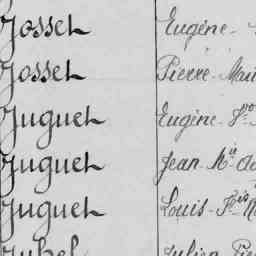 Josset Eugène
Josset Pierre Mari
Juguet Eugène Fço
Juguet Jean Mie
Juguet Louis Fçis
Juhel Julien Pie